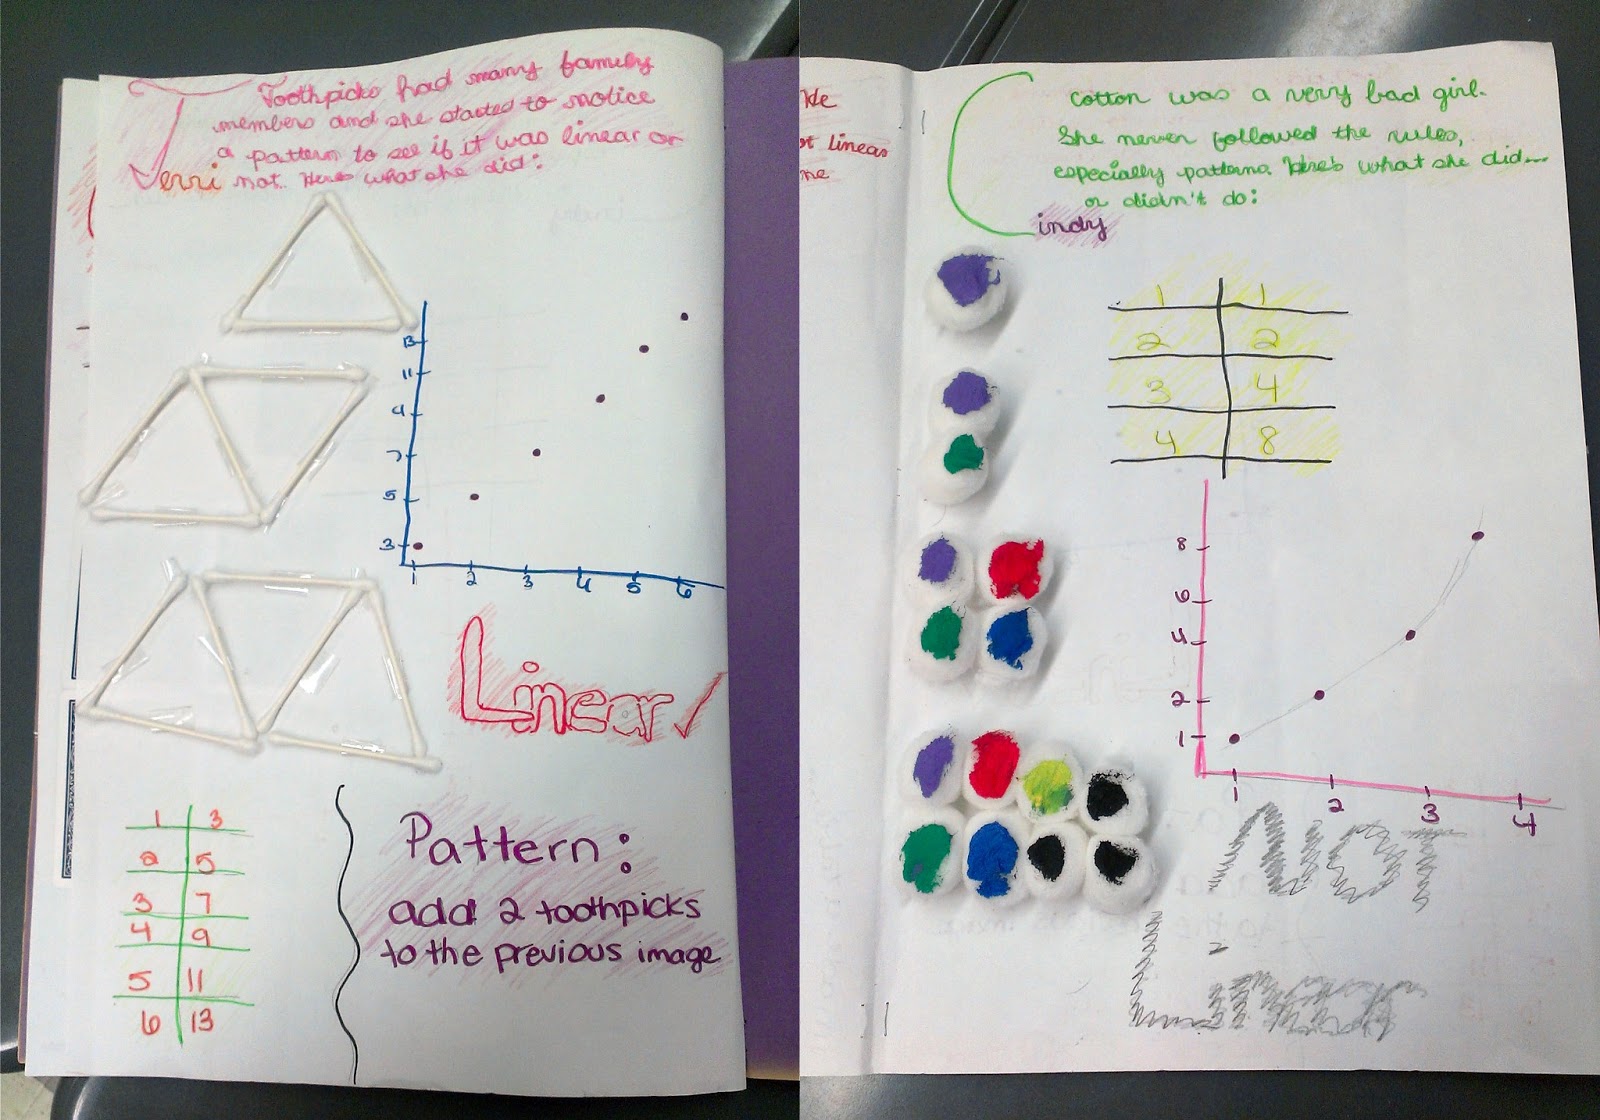 Toothpicks had many famely
members and she started to notice
a pattern to see if it was linear or
Terri not. Here's what she did:
13
11
9
7
5
3
1 2 3 4 5 6
Linear ✓
1 3
2 5
3 7
4 9
5 11
6 13
Pattern:
add 2 toothpicks
to the previous image
de
ot linear
ne
Cotton was a very bad girl.
She never followed the rules,
especially patterns. Here's what she did...
or didn't do:
Cindy
1 1
2 2
3 4
4 8
8
6
4
2
1
1 2 3 4
NOT
Linear